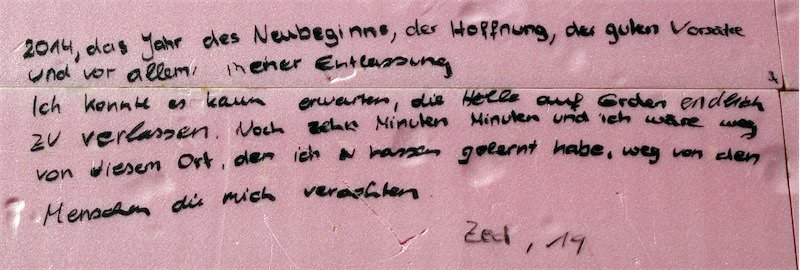 2014, das Jahr des Neubeginns, der Hoffnung, der guten Vorsätze
und vor allem: meiner Entlassung
Ich konnte es kaum erwarten, die Hölle auf Erden endlich
zu verlassen. Noch zehn Minuten Minuten und ich wäre weg
von diesem Ort, den ich zu hassen gelernt habe, weg von den
Menschen die mich verachten
19